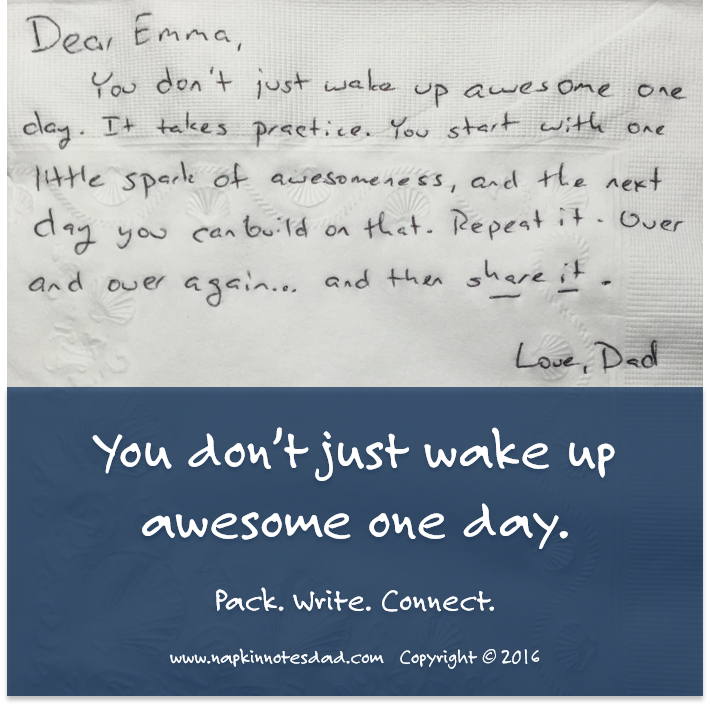 Dear Emma,
You don't just wake up awesome one
day. It takes practice. You start with one
little spark of awesomeness, and the next
day you can build on that. Repeat it. Over
and over again... and then share it.
Love, Dad
You don't just wake up
awesome one day.
Pack. Write. Connect.
www.napkinnotesdad.com Copyright © 2016